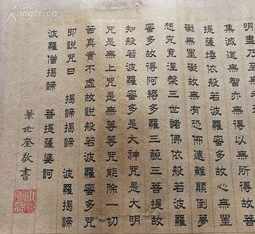 明盡乃至
集滅道無智亦無得以無所得故菩
提薩埵依般若波羅蜜多故心無罣
礙無罣礙故無有恐怖遠離顛倒夢
想究竟涅槃三世諸佛依般若波羅
蜜多故得阿耨多羅三藐三菩提故
知般若波羅蜜多是大神咒是大明
咒是無上咒是無等等咒能除一切
苦真實不虛故說般若波羅蜜多咒
即說咒曰 揭諦揭諦 波羅揭諦
波羅僧揭諦 菩提薩婆訶
華世奎敬書